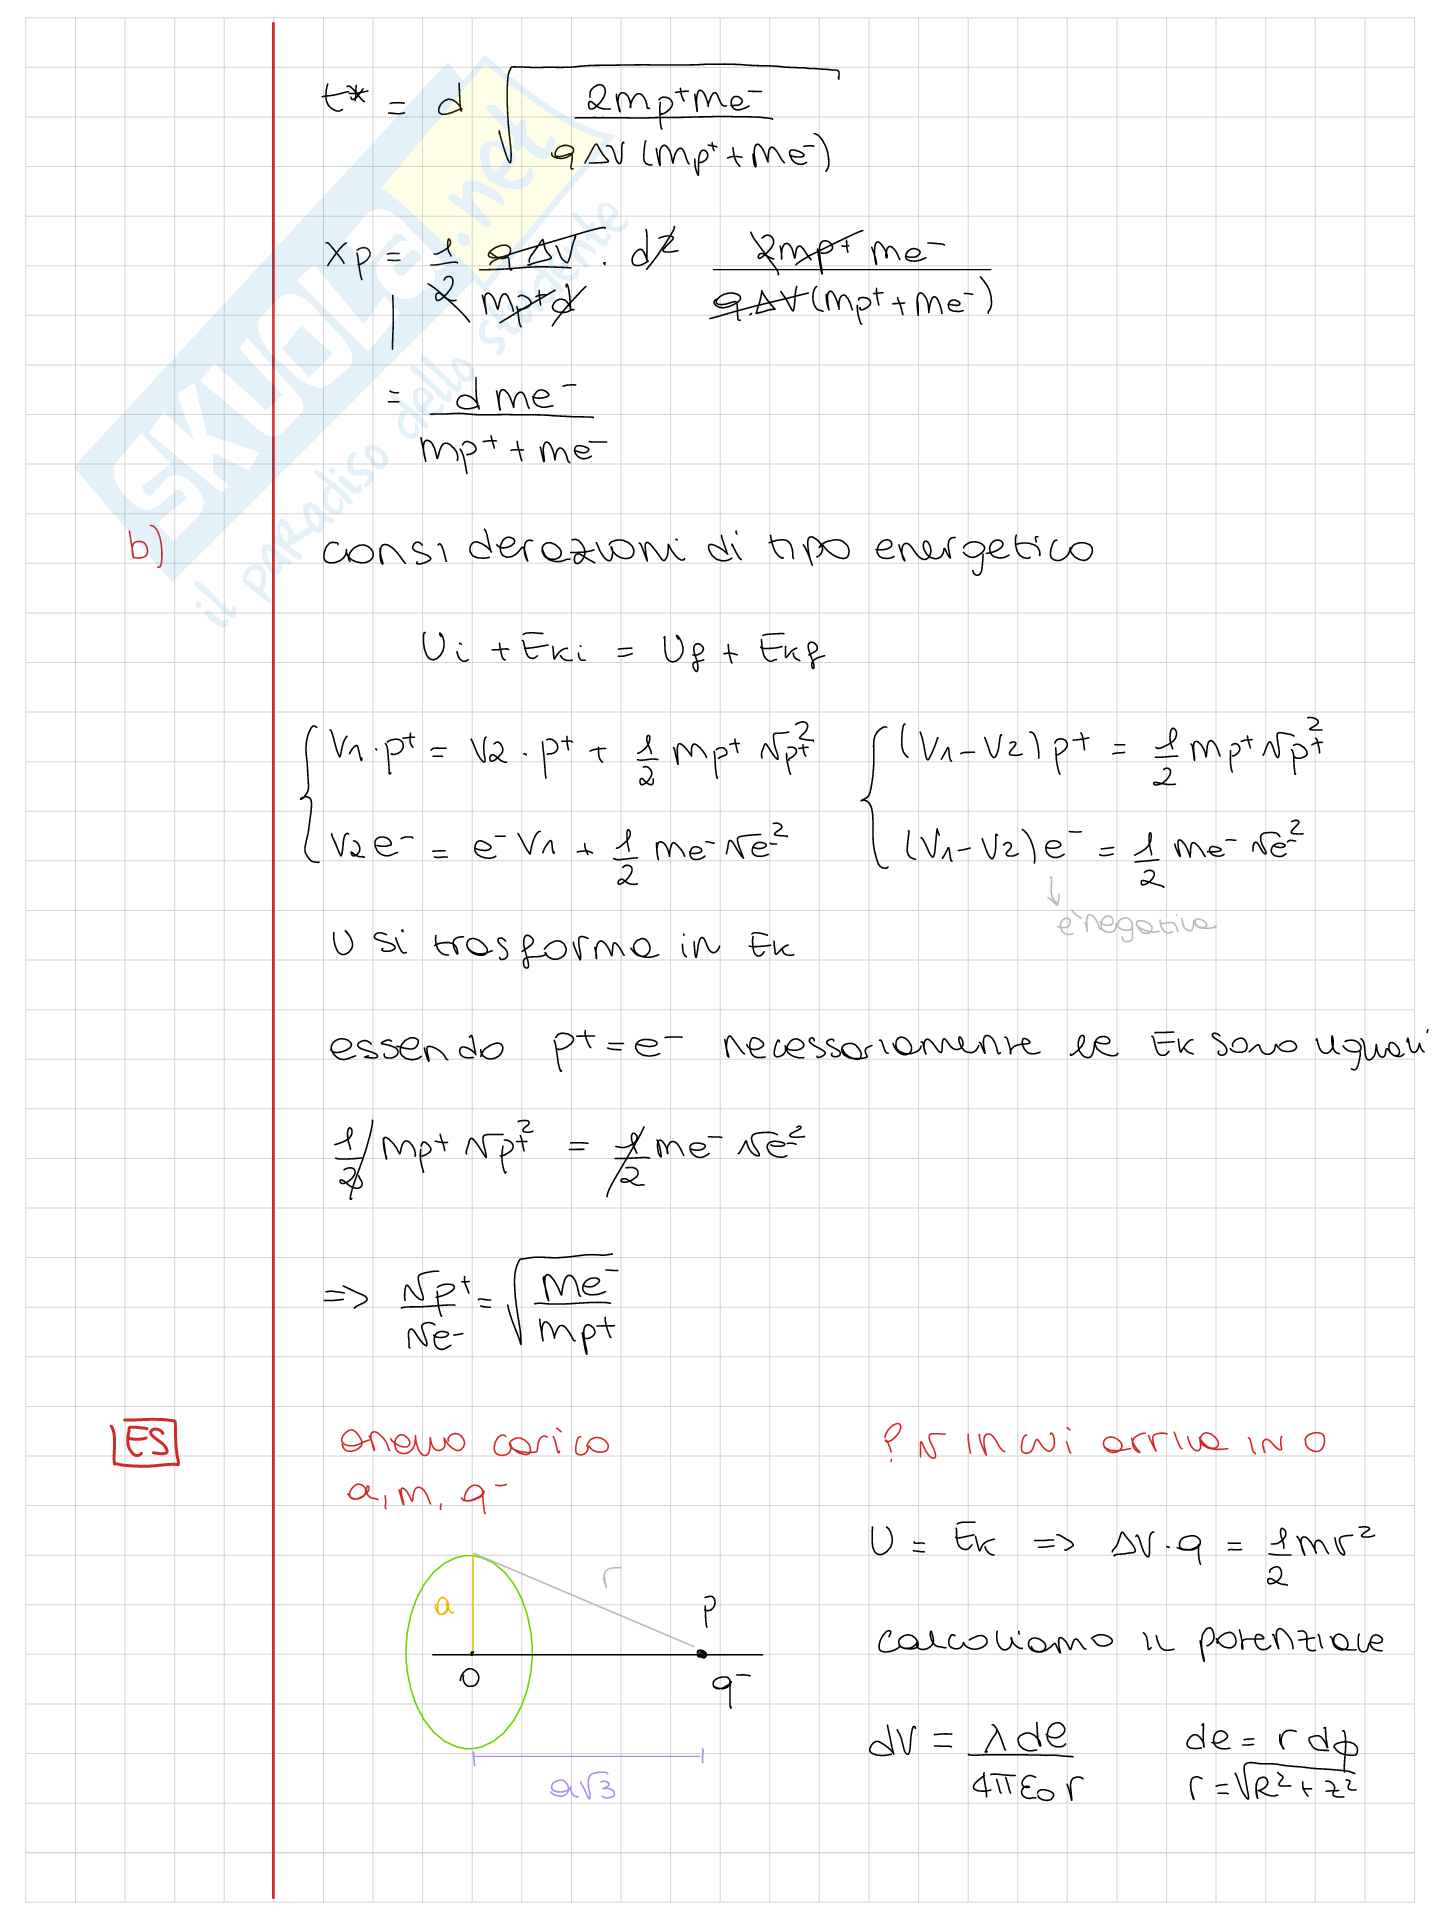 t* = d √ 2mp⁺me⁻ / qΔV (mp⁺ + me⁻)
xp = 1/2 qΔV / mp⁺d · d² 2mp⁺ me⁻ / q·ΔV (mp⁺ + me⁻)
= d me⁻ / mp⁺ + me⁻
b) considerazioni di tipo energetico
Ui + Eki = Uf + Ekf
{ V1 · p⁺ = V2 · p⁺ + 1/2 mp⁺ vp⁺² { (V1 - V2) p⁺ = 1/2 mp⁺ vp⁺²
V2 e⁻ = e⁻ V1 + 1/2 me⁻ ve⁻² (V1 - V2) e⁻ = 1/2 me⁻ ve⁻²
↓
è negativa
U si trasforma in Ek
essendo p⁺ = e⁻ necessariamente le Ek sono uguali
1/2 mp⁺ vp⁺² = 1/2 me⁻ ve⁻²
=> vp⁺ / ve⁻ = √ me⁻ / mp⁺
ES anello carico ? v in cui arriva in O
a, m, q⁻
U = Ek => ΔV · q = 1/2 mv²
a r P
calcoliamo il potenziale
O q⁻
dV = λ dl / 4πε₀ r dl = r dϕ
a√3 r = √R² + z²
SKUOLA.net
il paradiso dello studente